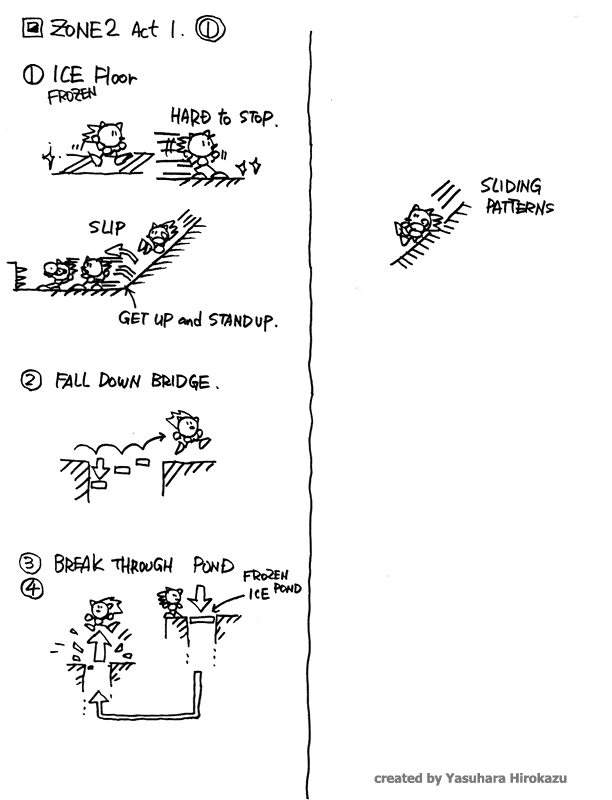 ZONE2 Act 1. ①
① ICE Floor
FROZEN
HARD to STOP.
SLIP
GET UP and STAND UP.
② FALL DOWN BRIDGE.
③ BREAK THROUGH POND
④
FROZEN
ICE POND
SLIDING
PATTERNS
created by Yasuhara Hirokazu